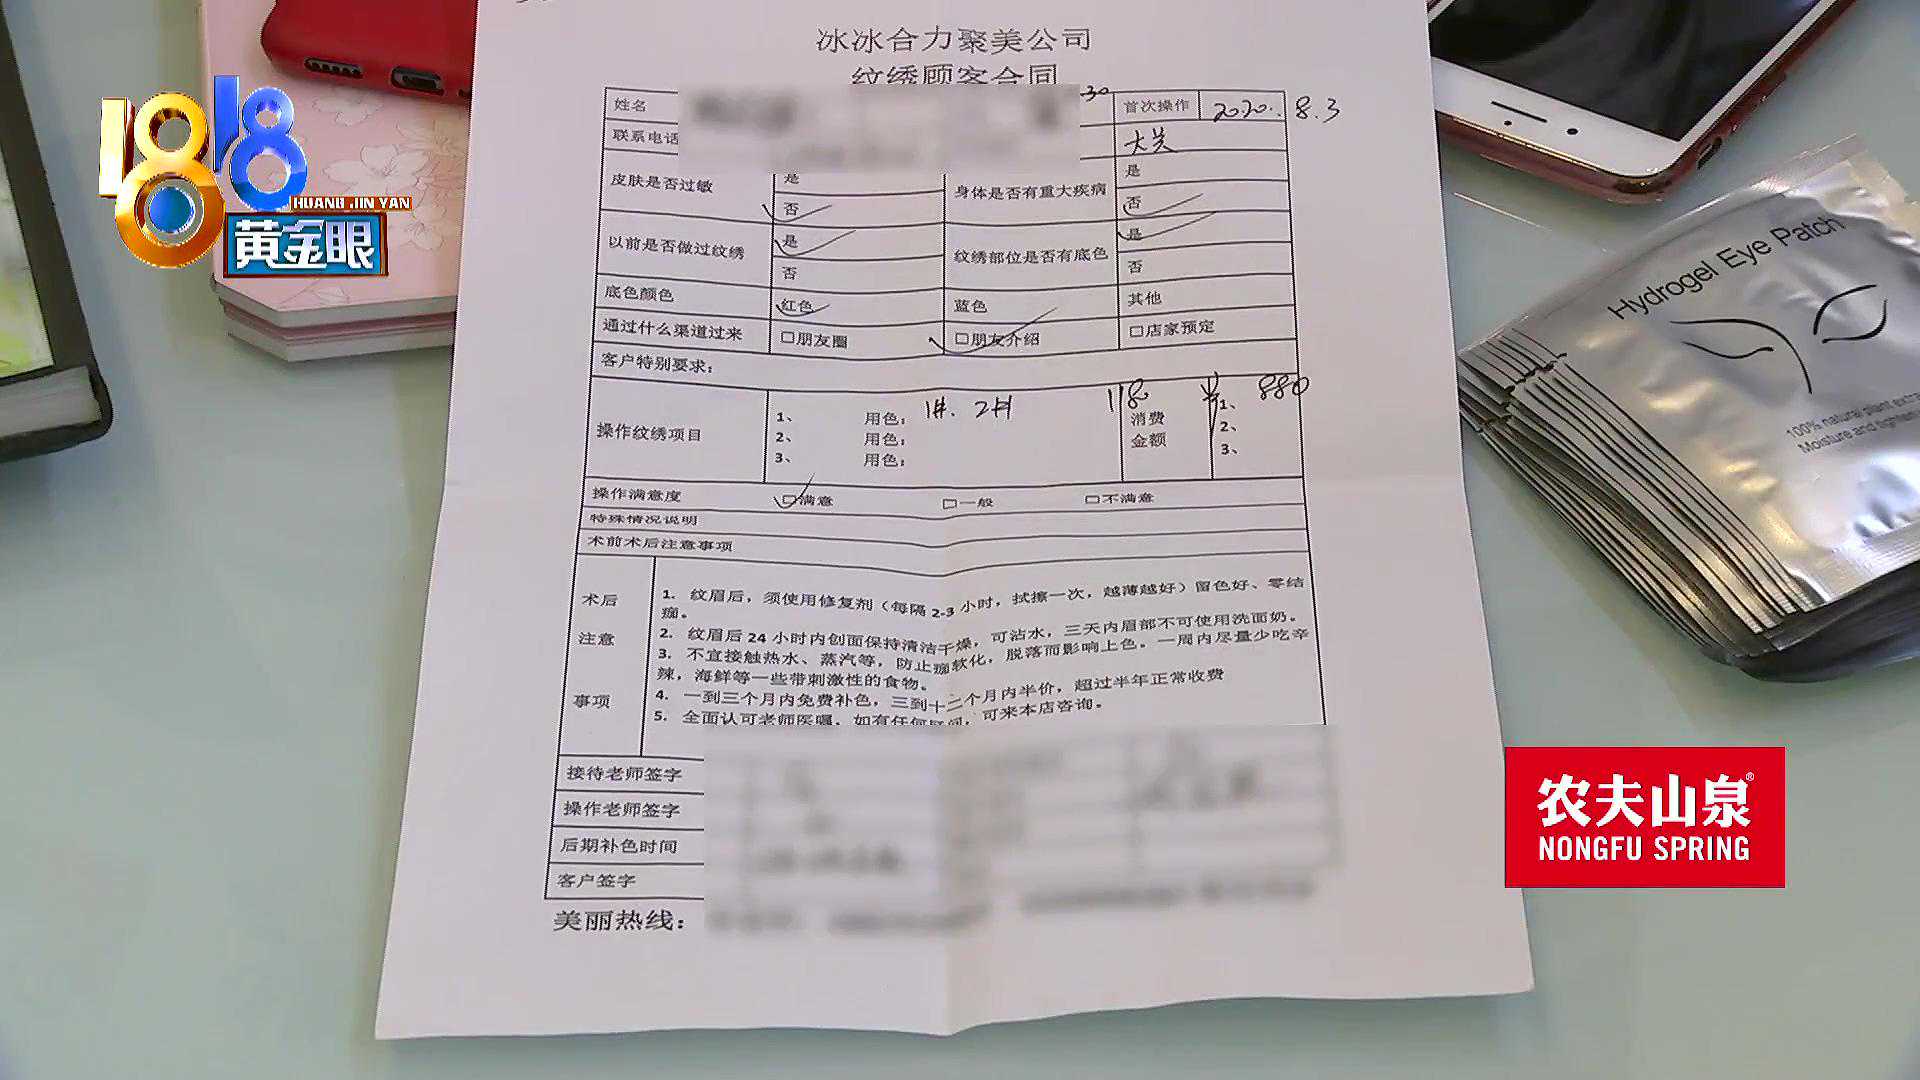 冰冰合力聚美公司
纹绣顾客合同
姓名 30 首次操作 2020.8.3
联系电话 大关
皮肤是否过敏 是 否 身体是否有重大疾病 是 否
以前是否做过纹绣 是 否 纹绣部位是否有底色 是 否
底色颜色 红色 蓝色 其他
通过什么渠道过来 □朋友圈 □朋友介绍 □店家预定
客户特别要求：
操作纹绣项目 1、 用色： 1#. 2# 118 消费金额 1、 880
2、 用色： 2、
3、 用色： 3、
操作满意度 □满意 □一般 □不满意
特殊情况说明
术前术后注意事项
术后注意事项
1. 纹眉后，须使用修复剂（每隔2-3小时，拭擦一次，越薄越好）留色好、零结
痂。
2. 纹眉后24小时内创面保持清洁干燥，可沾水，三天内眉部不可使用洗面奶。
3. 不宜接触热水、蒸汽等，防止痂软化，脱落而影响上色。一周内尽量少吃辛
辣，海鲜等一些带刺激性的食物。
4. 一到三个月内免费补色，三到十二个月内半价，超过半年正常收费
5. 全面认可老师医嘱，如有任何疑问，可来本店咨询。
接待老师签字
操作老师签字
后期补色时间
客户签字
美丽热线：
1818
HUANG JIN YAN
黄金眼
Hydrogel Eye Patch
100% natural plant extra
Moisture and tighten
农夫山泉®
NONGFU SPRING